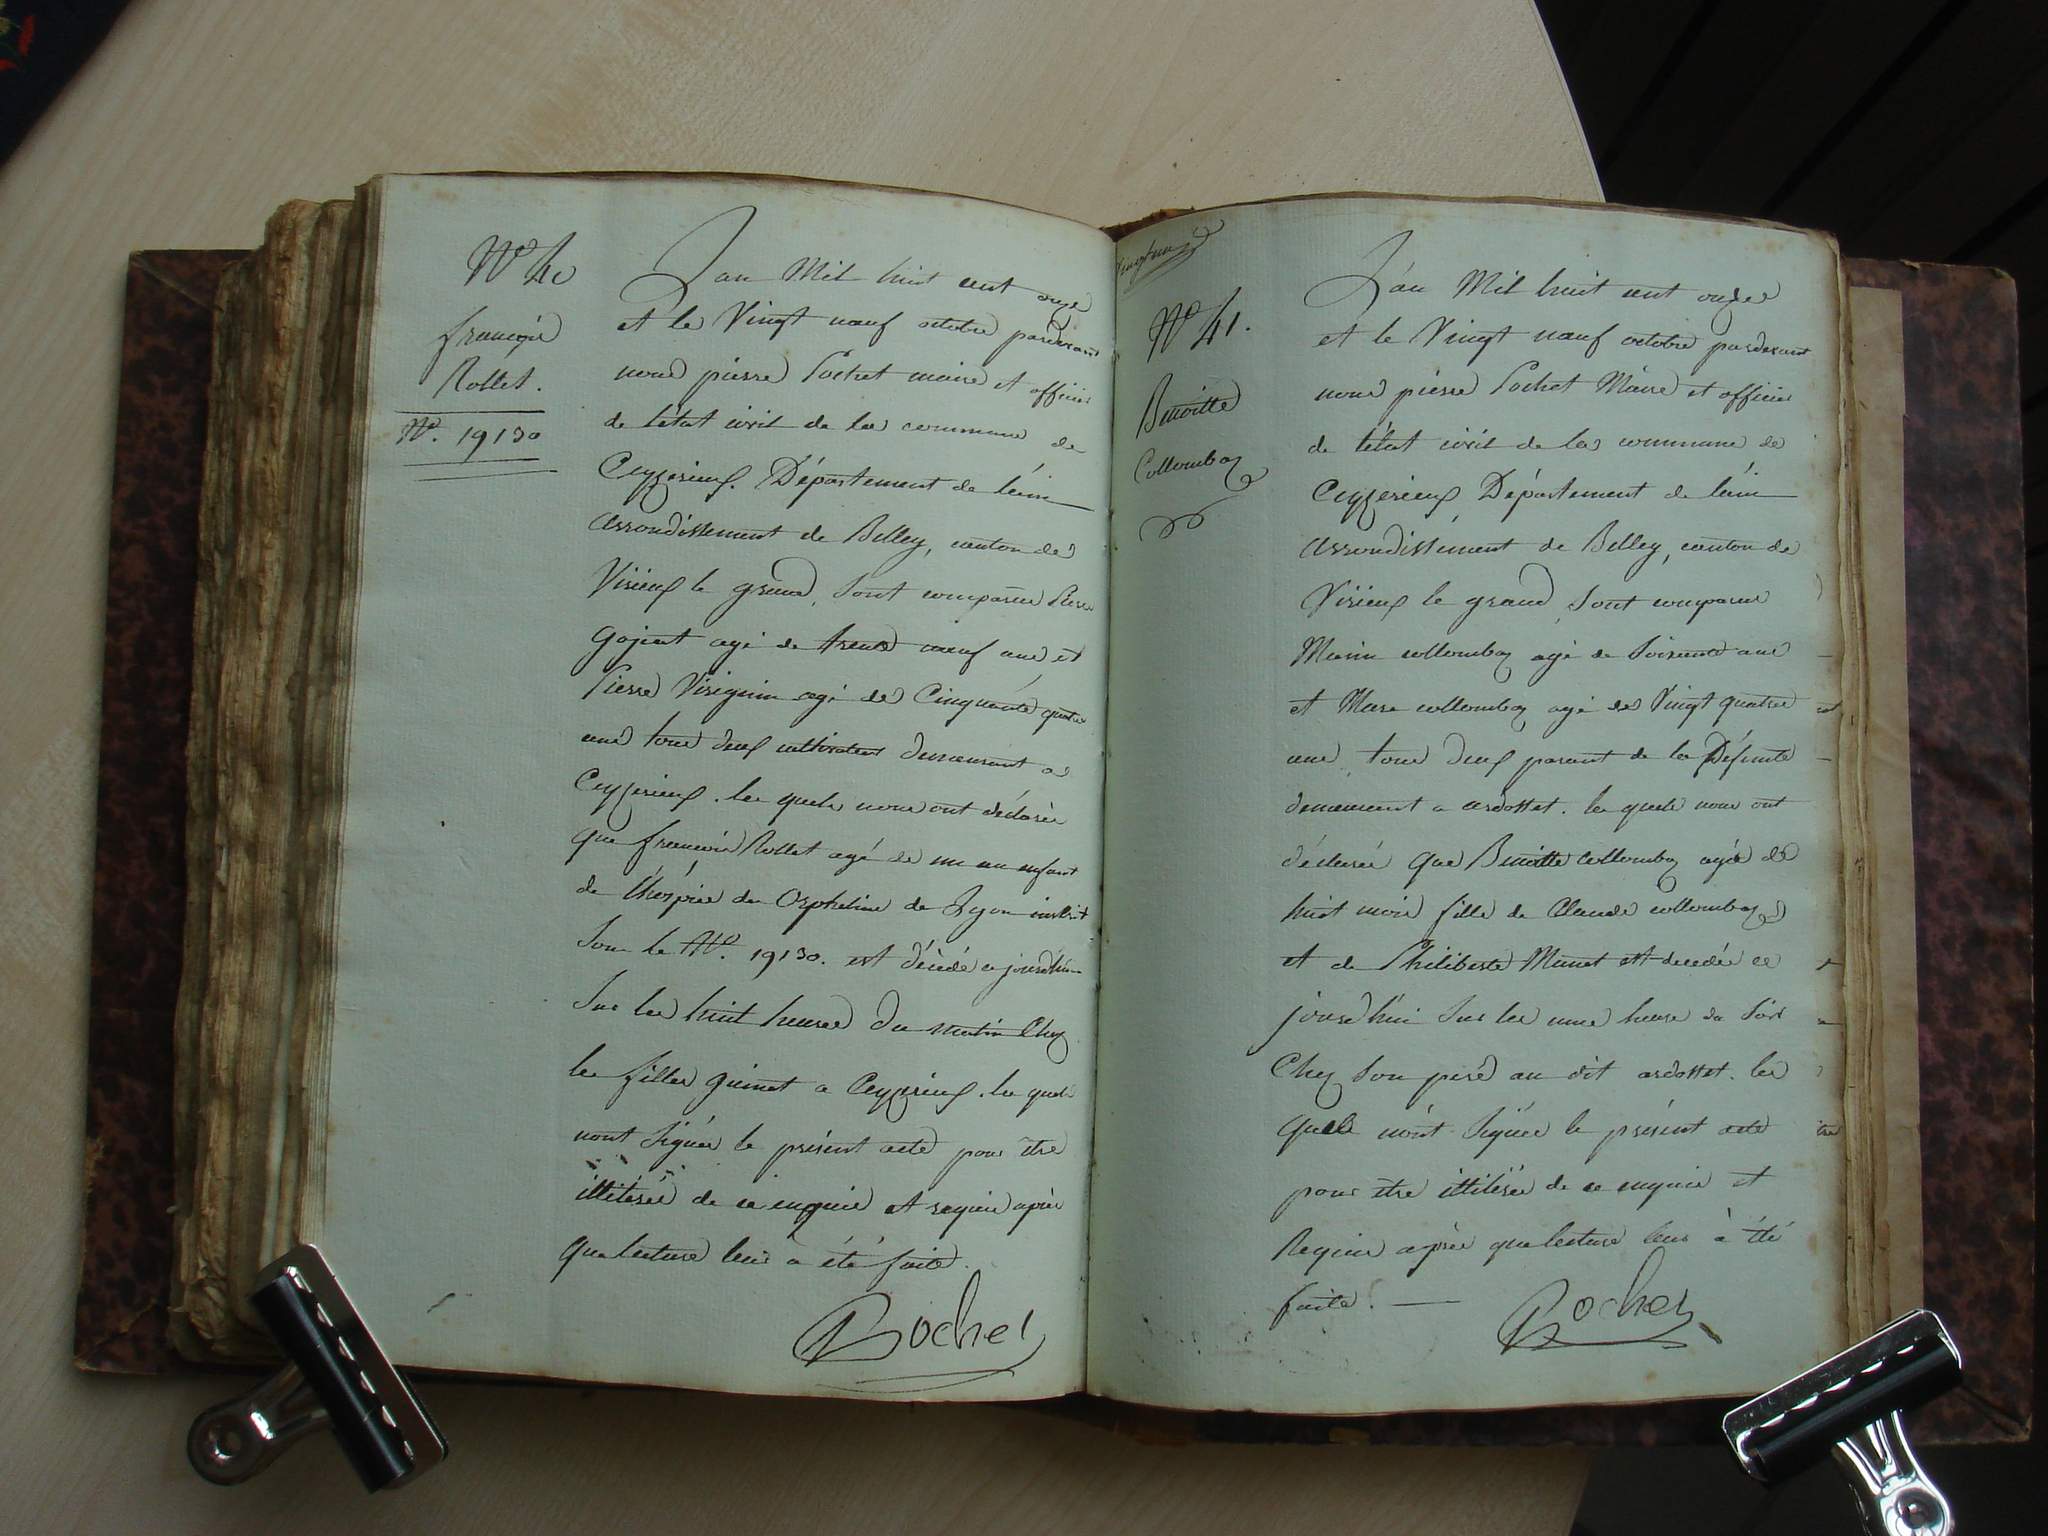 N° 40
françois
Rollet.
N°. 19130
L'an Mil huit cent onze
et le Vingt neuf octobre pardevant
nous pierre Pochet maire et officier
de l'état civil de la commune de
Ceyzerieux. Département de l'ain
arrondissement de Belley, canton de
Virieux le grand, sont comparus Pierre
gojeat agé de trente neuf ans et
Pierre Virignin agé de Cinquante quatre
ans tous deux cultivateurs demeurant a
Ceyzerieux. les quels nous ont déclaré
que françois Rollet agé de un an enfant
de l'hospice des Orphelins de Lyon inscrit
Sous le N°. 19130. est décédé ajourd'hui
Sur les huit heures du matin Chez
les filles guinet a Ceyzerieux. les quels
n'ont signés le présent acte pour être
illitérés de ce enquis et requis après
que lecture leur a été faite.
Bochet
N° 41.
Benoitte
Collomba
L'an Mil huit cent onze
et le Vingt neuf octobre pardevant
nous pierre Pochet Maire et officier
de l'état civil de la commune de
Ceyzerieux Département de l'ain
arrondissement de Belley, canton de
Virieux le grand, sont comparus
Marin collomba agé de Soixante ans
et Marc collomba agé de Vingt quatre
ans, tous deux parant de la Défunte
demeurant a ardosset. les quels nous ont
déclaré que Benoitte collomba agée de
huit mois fille de Claude collomba
et de Philiberte Munet est decedée ce
jourd'hui Sur les heure du Soir
Chez Son peré au dit ardosset. les
quels n'ont Signée le présent acte
pour être illitérée de ce enquis et
Requis après que lecture leur à été
faite.
Bochet